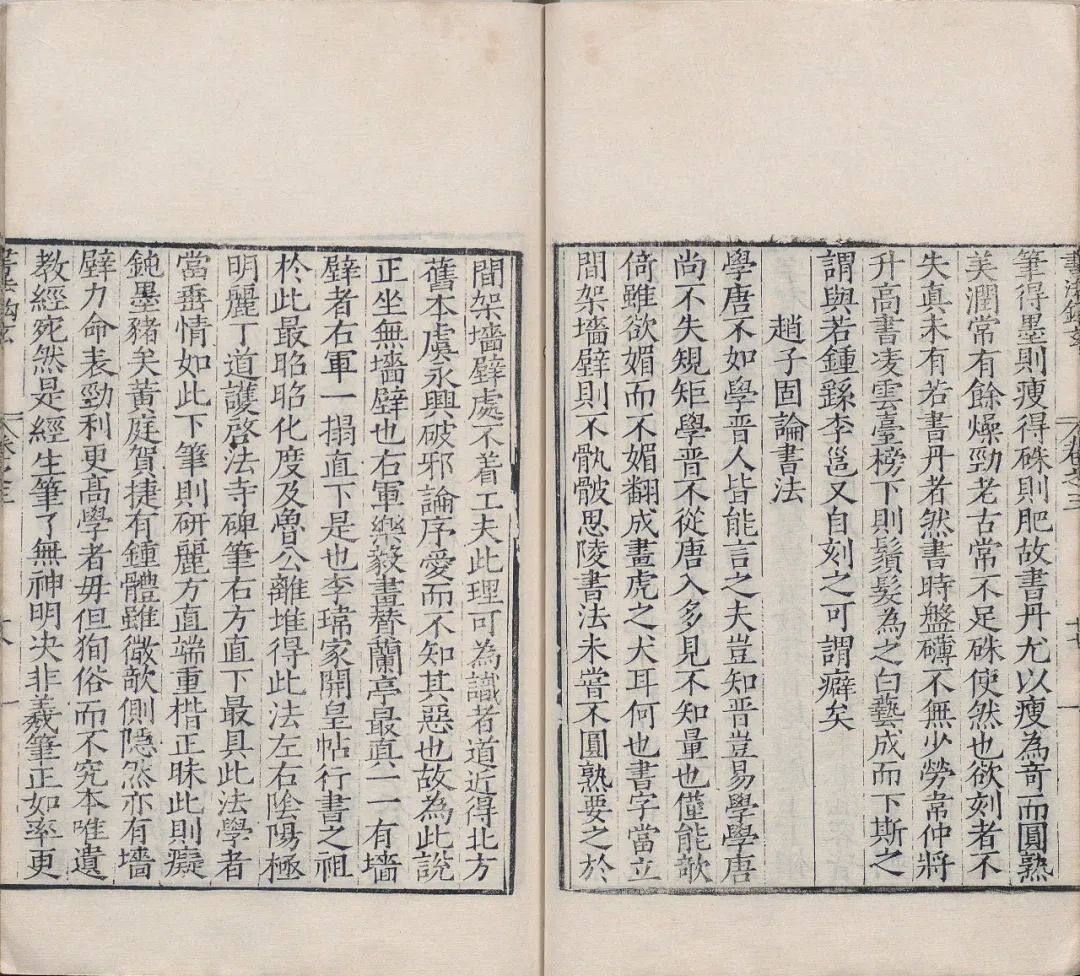 筆得墨則瘦得硃則肥故書丹尤以瘦為竒而圓熟
美潤常有餘燥勁老古常不足硃使然也欲刻者不
失真未有若書丹者然書時盤礴不無少勞韋仲將
升高書凌雲臺榜下則鬚髮為之白藝成而下斯之
謂與若鍾繇李邕又自刻之可謂癖矣
趙子固論書法
學唐不如學晋人皆能言之夫豈知晋豈易學學唐
尚不失規矩學晋不從唐入多見不知量也僅能欹
倚雖欲媚而不媚翻成畫虎之犬耳何也書字當立
間架墻壁則不骫骳思陵書法未嘗不圓熟要之於
間架墻壁處不着工夫此理可為識者道近得北方
舊本虞永興破邪論序愛而不知其惡也故為此說
正坐無墻壁也右軍樂毅畫賛蘭亭最真一一有墻
壁者右軍一搨直下是也李瑋家開皇帖行書之祖
於此最昭昭化度及魯公離堆得此法左右陰陽極
明麗丁道護啓法寺碑筆右方直下最具此法學者
當垂情如此下筆則研麗方直端重楷正昧此則癡
鈍墨豬矣黃庭賀捷有鍾體雖微欹側隱然亦有墻
壁力命表勁利更高學者毋但狥俗而不究本唯遺
教經死然是經生筆了無神明决非羲筆正如率更